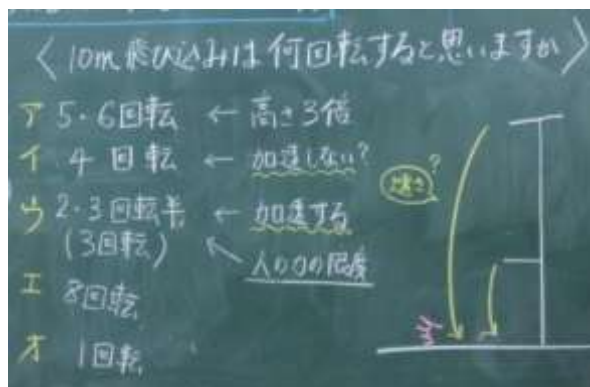 〈10m飛び込みは何回転すると思いますか〉
ア 5・6回転 ← 高さ3倍
イ 4回転 ← 加速しない?
ウ 2・3回転半 ← 加速する
(3回転) 人の の限度
エ 8回転
オ 1回転
速さ?